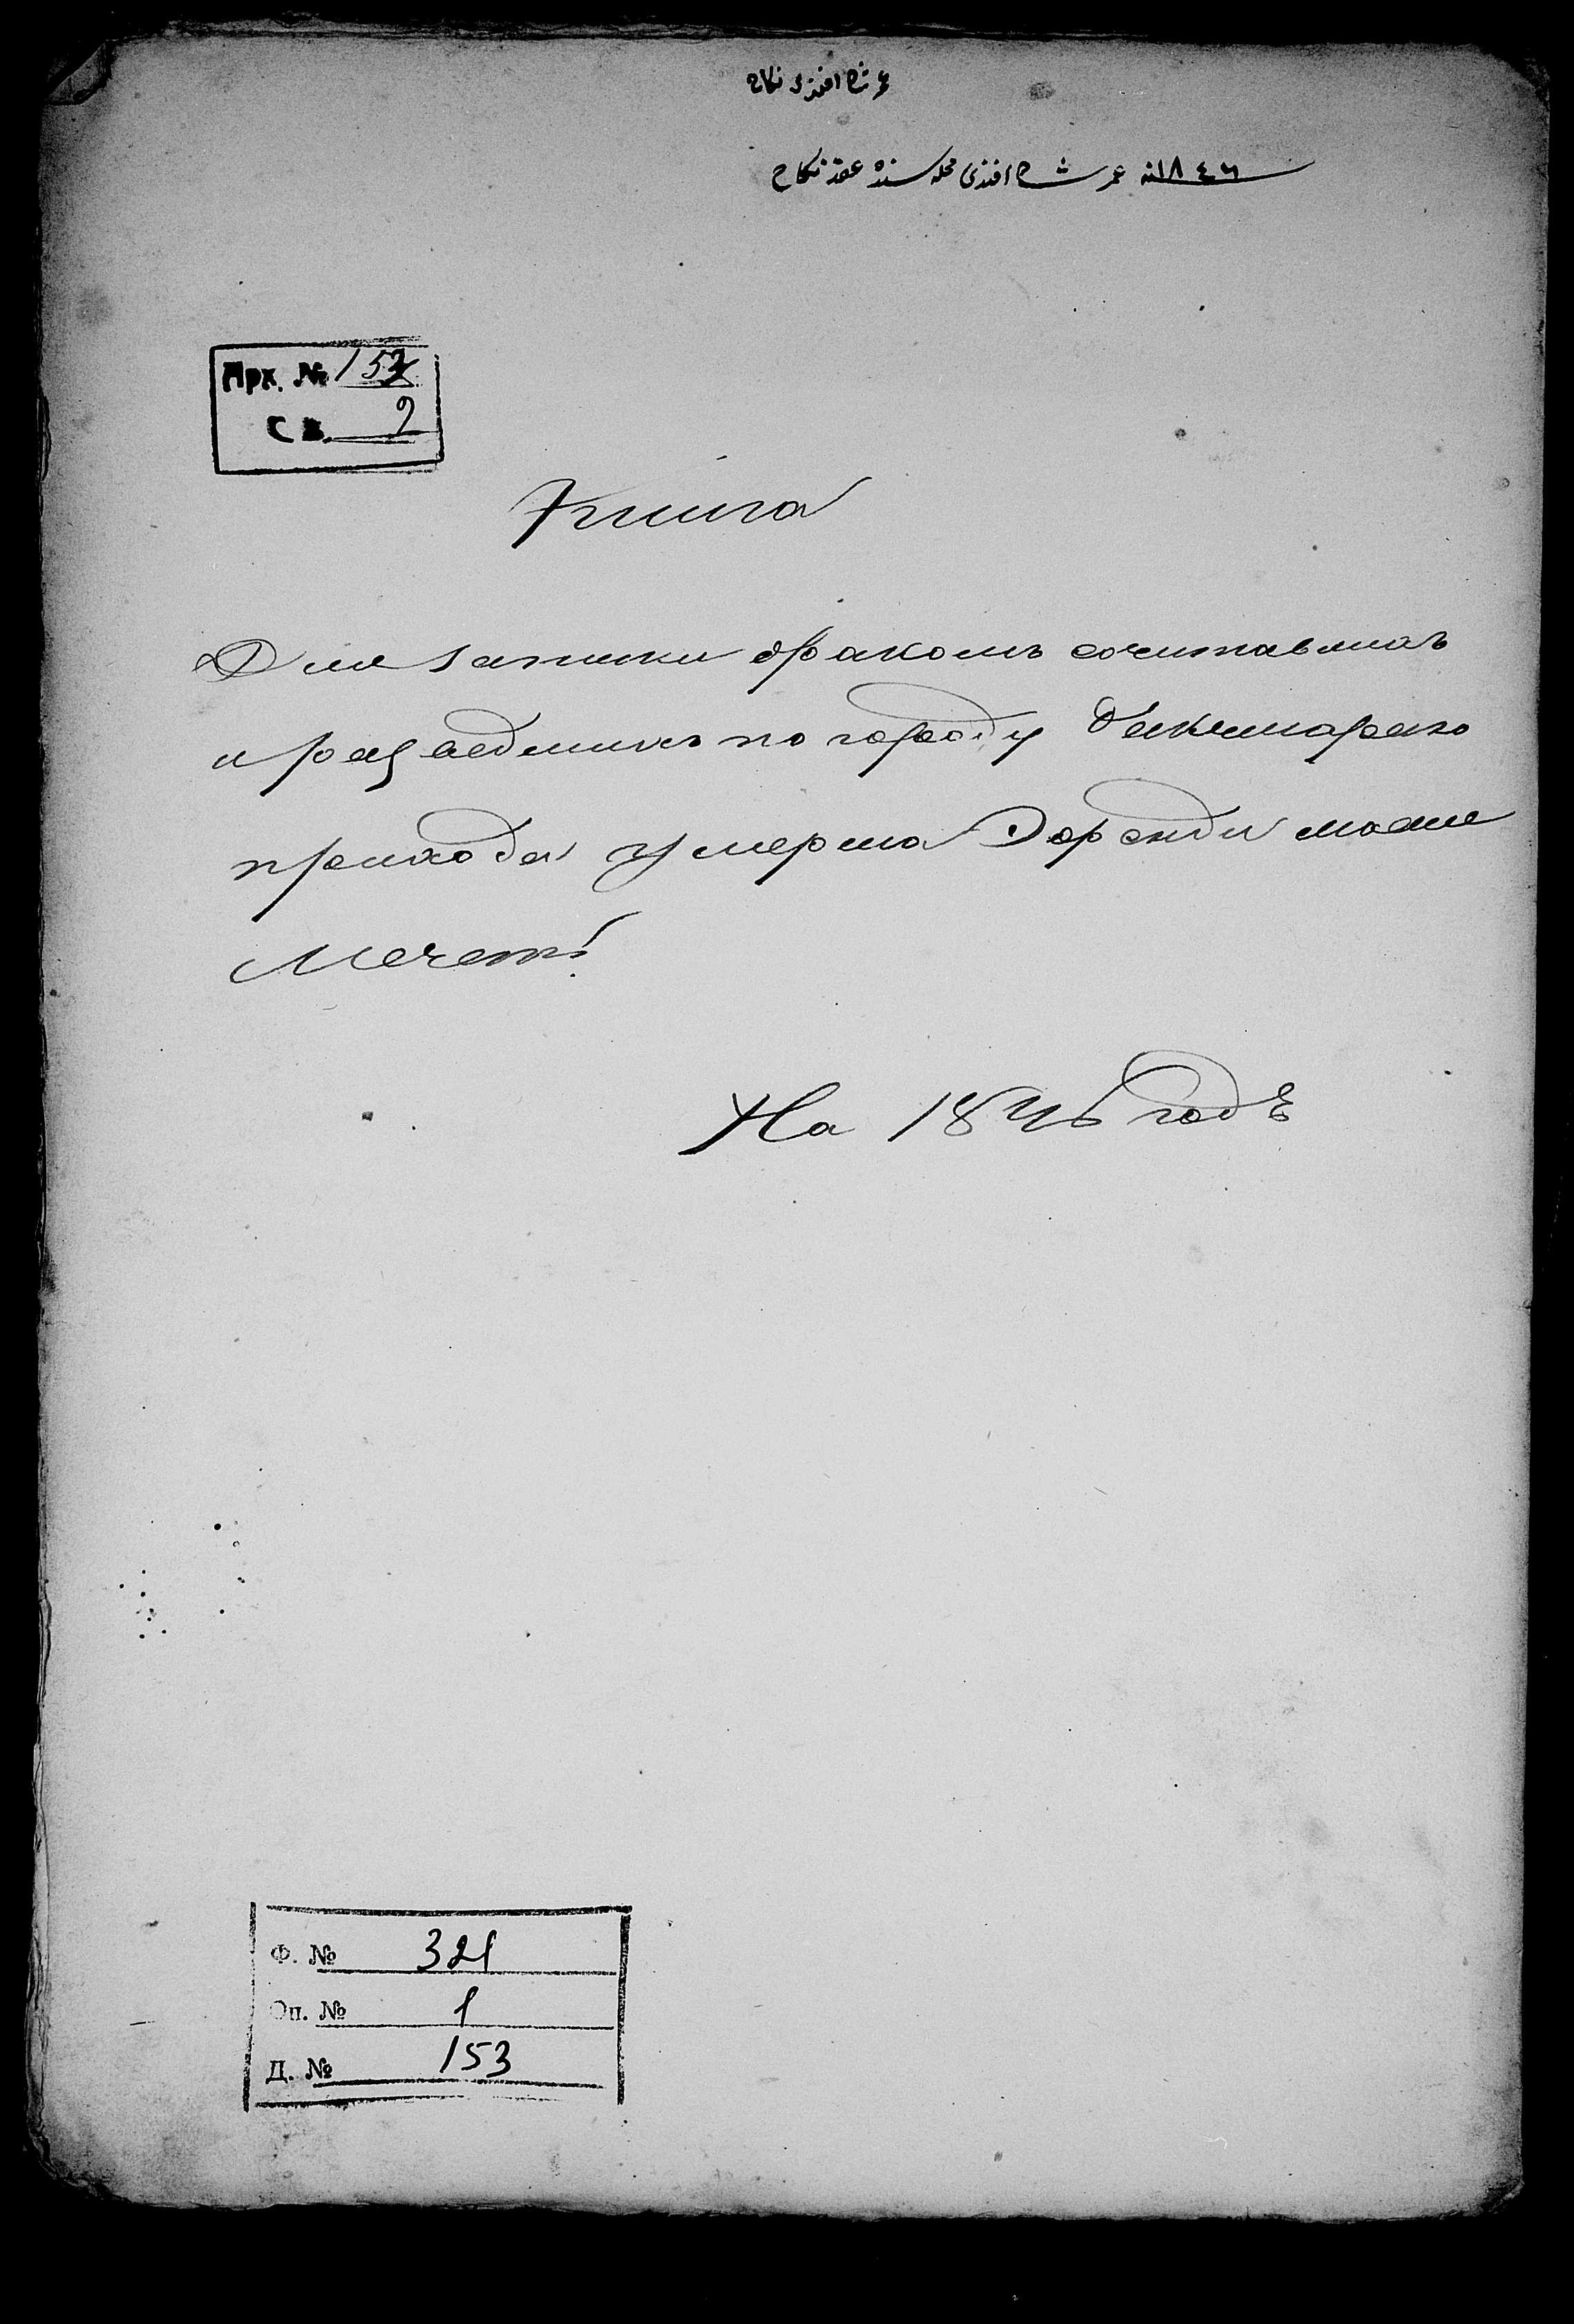 عمر شاه افندی نکاح
١٨٤٦نه عمر شاه افندی محله سنده عقد نکاح
Арх. № 153
СВ. 9
Книга
Для записки бракомъ сочитавшихъ
и разведшихъ по городу Бахчисараю
прихода Умерша Эфенди
Мечети
На 1846 годъ
Ф. № 321
Оп. № 1
Д. № 153